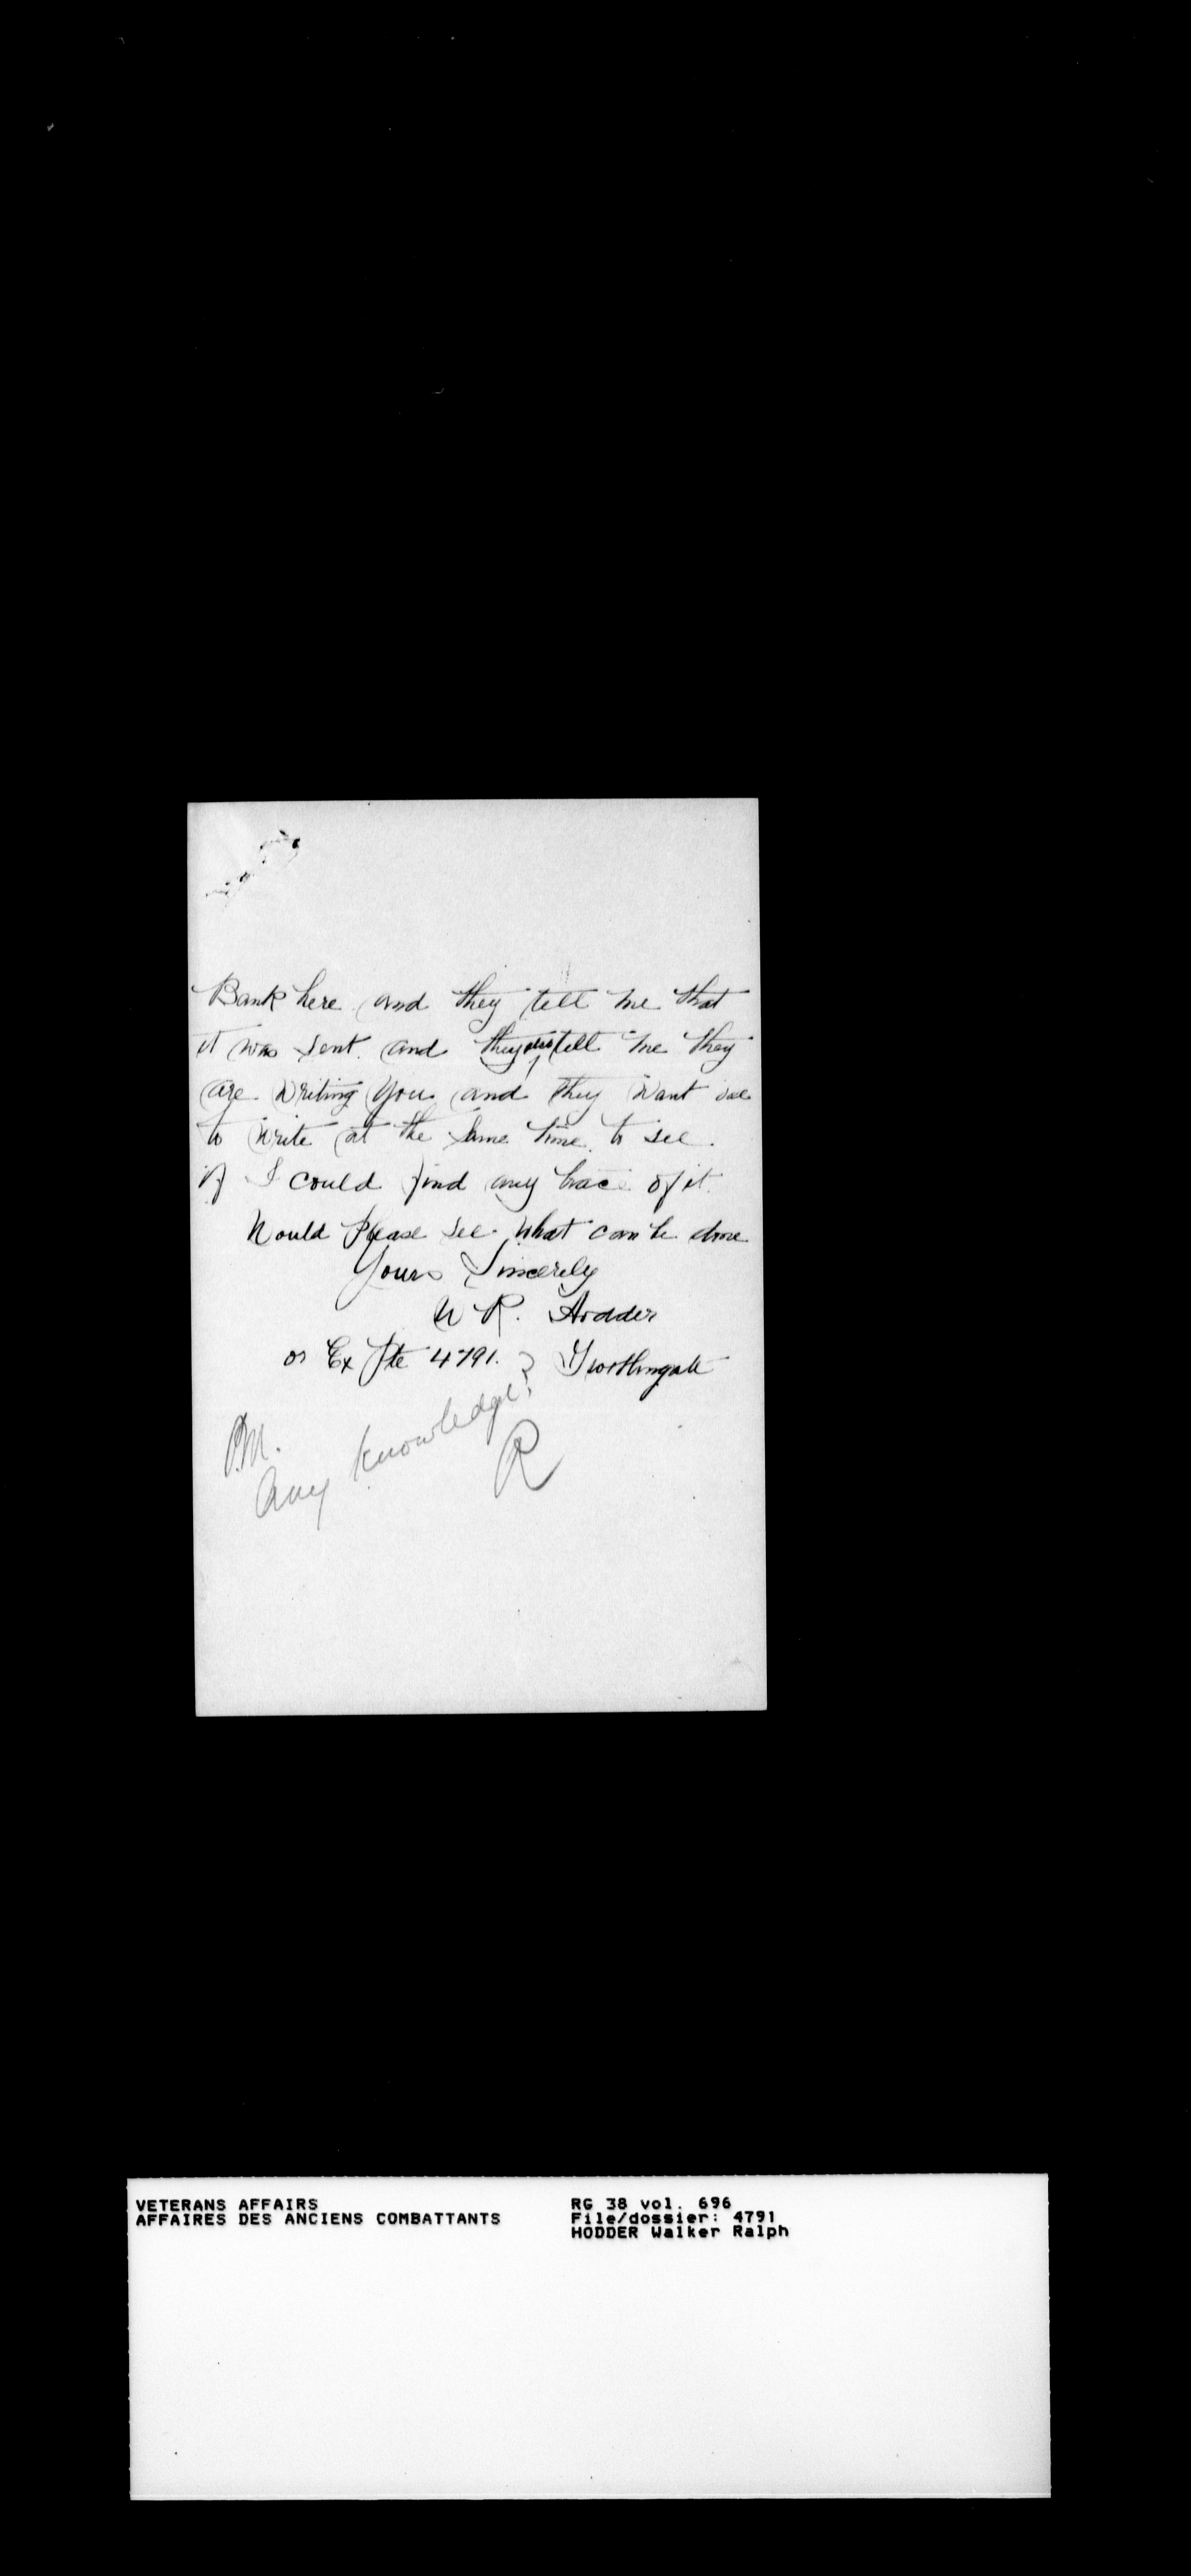 Bank here and they tell me that
it was sent. and they also tell me they
are writing you and they want me
to write at the same time to see.
if I could find any trace of it.
Would Please see what can be done
Yours Sincerely
W R. Hodder
or Ex Pte 4791.
P.M.
Any knowledge?
R
VETERANS AFFAIRS
AFFAIRES DES ANCIENS COMBATTANTS
RG 38 vol. 696
File/dossier: 4791
HODDER Walker Ralph